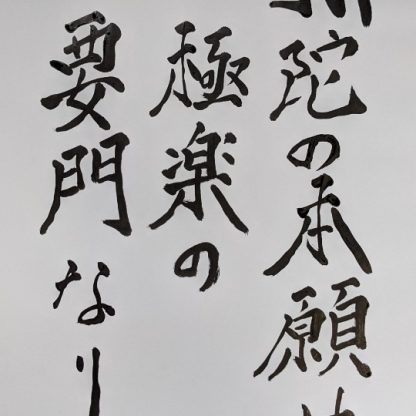 陀の本願
極楽の
要門なり